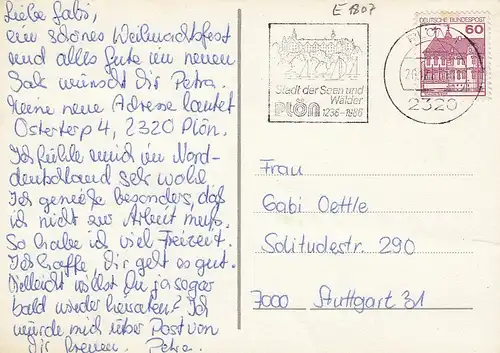 Liebe Gabi,
ein schönes Weihnachtsfest
und alles Gute im neuen
Jahr wünscht Dir Petra.
Meine neue Adresse lautet
Osterterp 4, 2320 Plön.
Ich fühle mich im Nord-
deutschland sehr wohl
Ich genieße besonders, daß
ich nicht zur Arbeit muß.
So habe ich viel Freizeit.
Ich hoffe, Dir geht es gut.
Vielleicht willst Du ja sogar
bald wieder heiraten? Ich
würde mich über Post von
Dir freuen. Petra.
E 1807
Stadt der Seen und
Wälder
PLÖN 1236-1986
PLÖN
2320
DEUTSCHE BUNDESPOST
60
Frau
Gabi Oettle
Solitudestr. 290
7000 Stuttgart 31